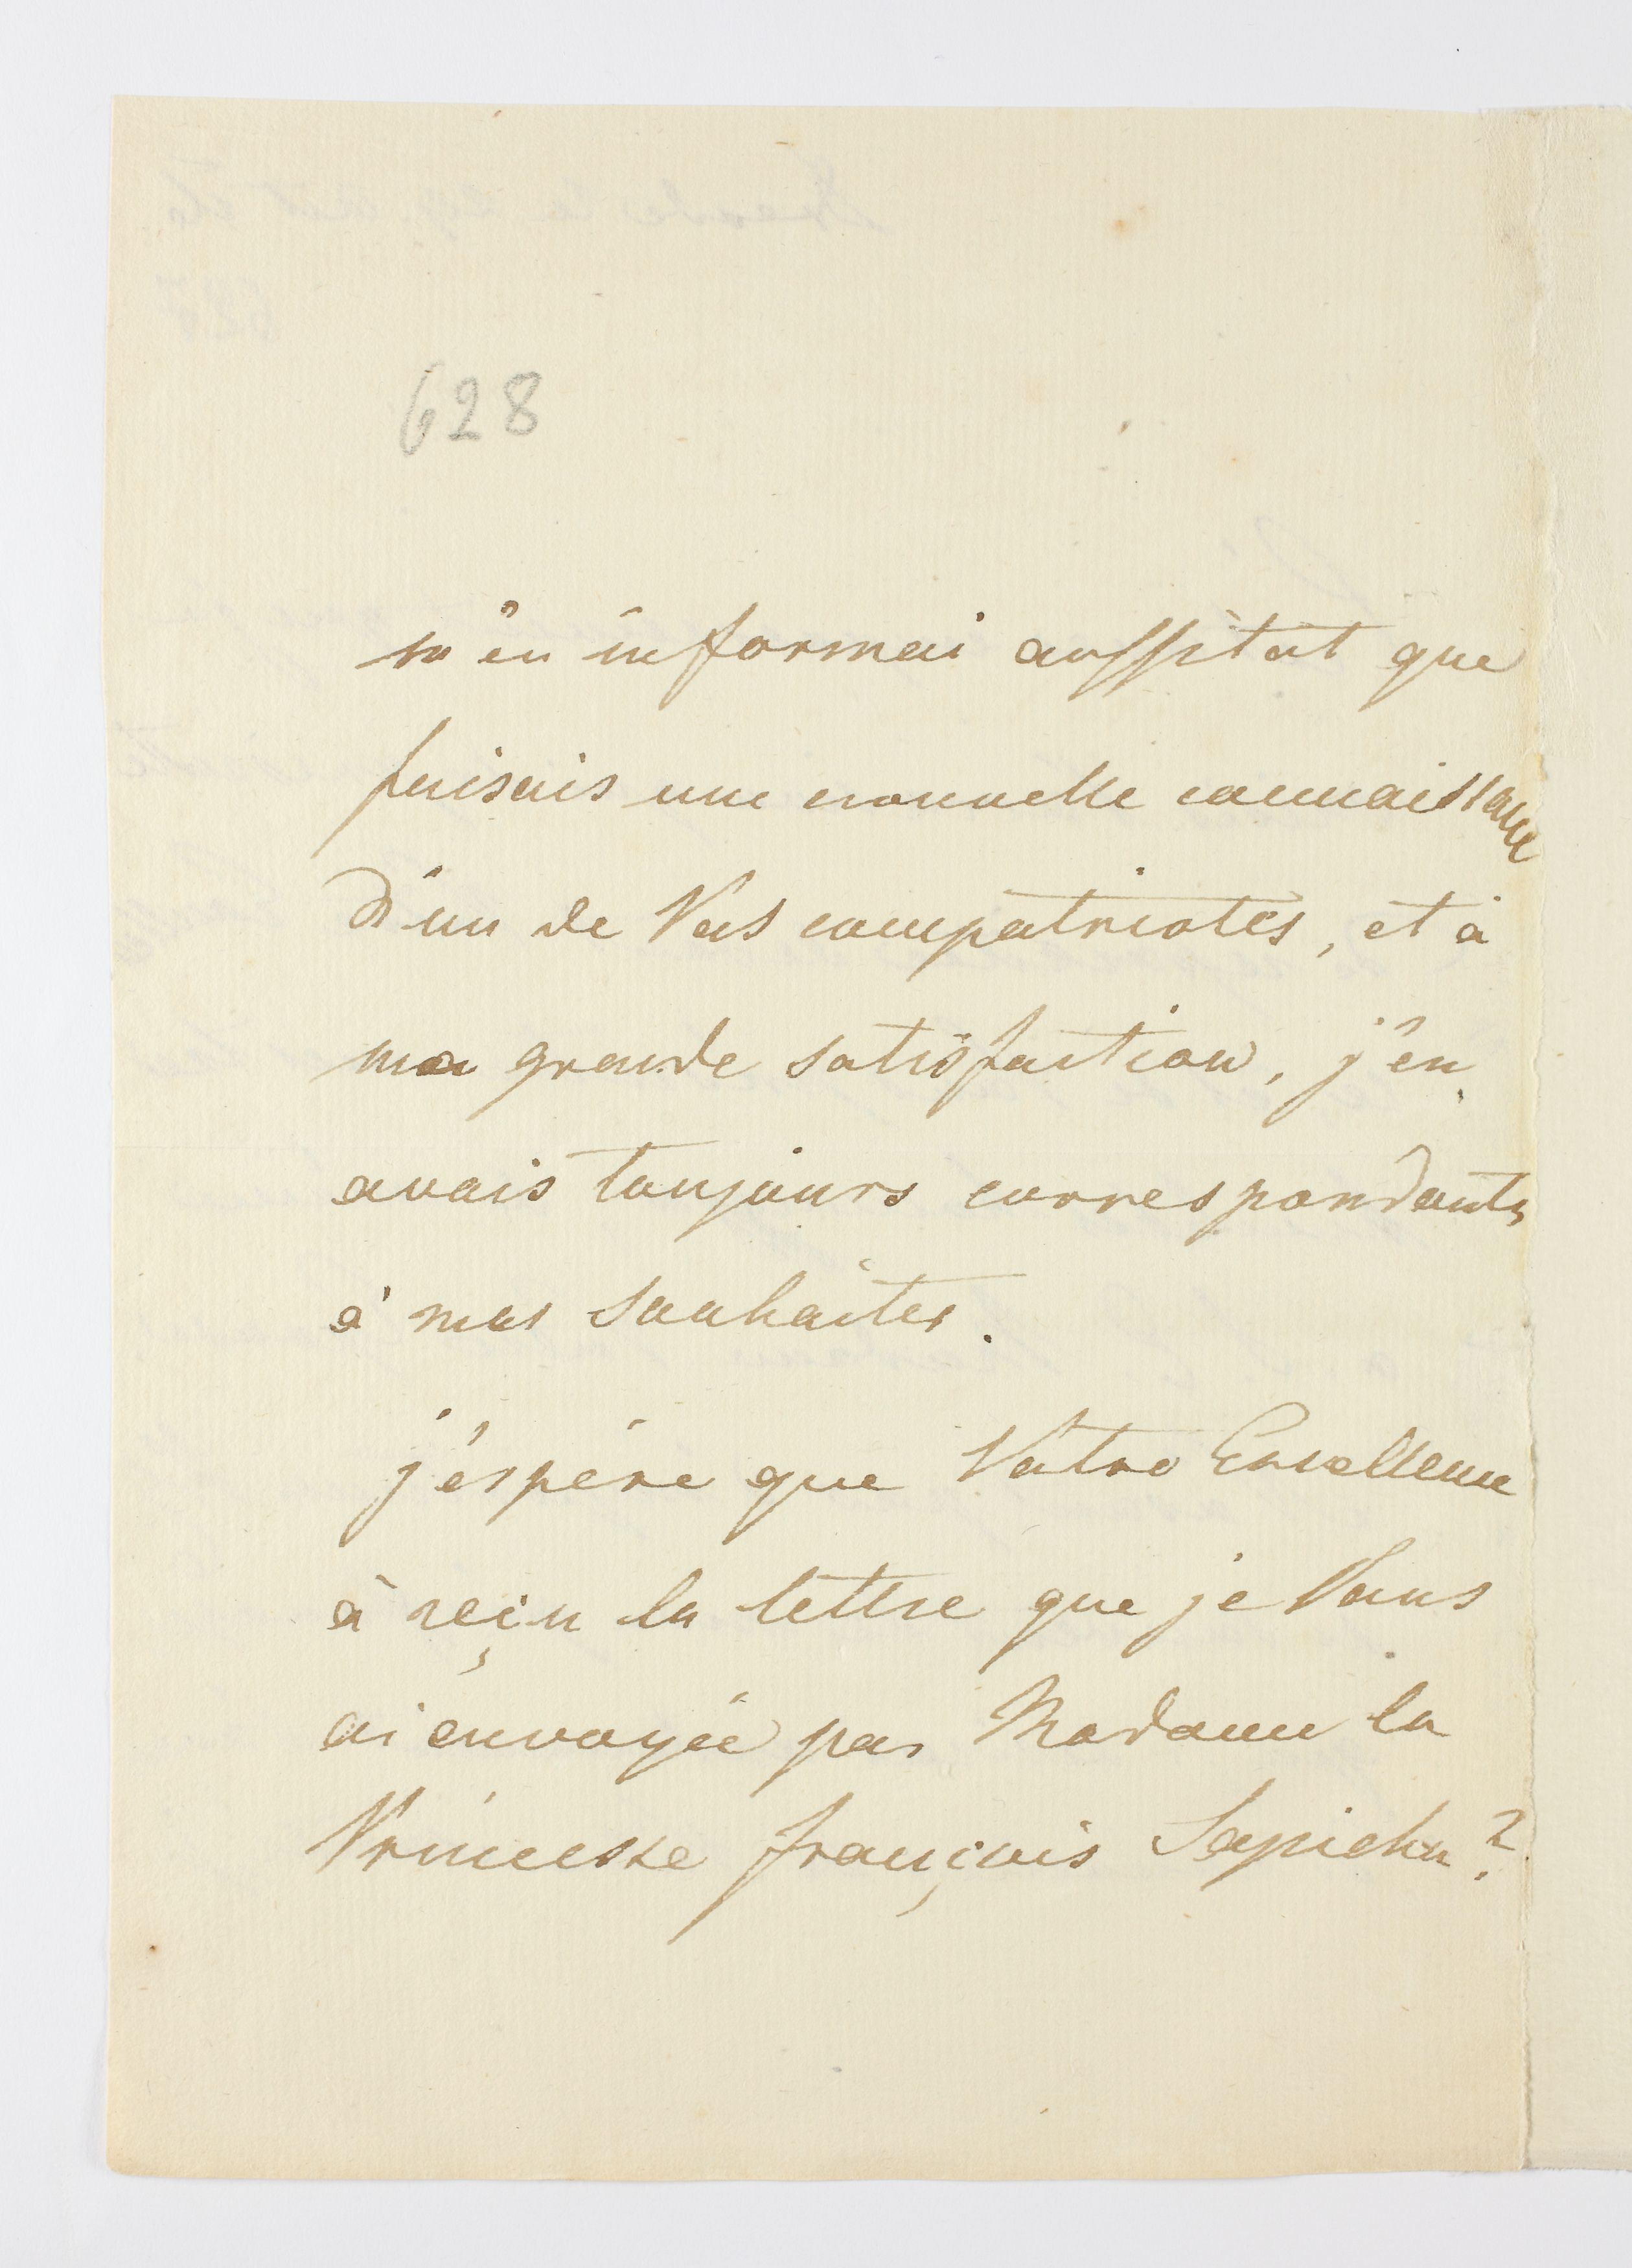 628
m'en informai aussitot que
faisais une nouvelle connaissance
d'un de Vos compatriotes, et à
ma grande satisfaction, j'en
avais toujours correspondants
à mes souhaites.
j'éspére que Votre Excellence
à reçu la lettre que je Vous
ai envoyée par Madame la
Princesse françois Sapieha?